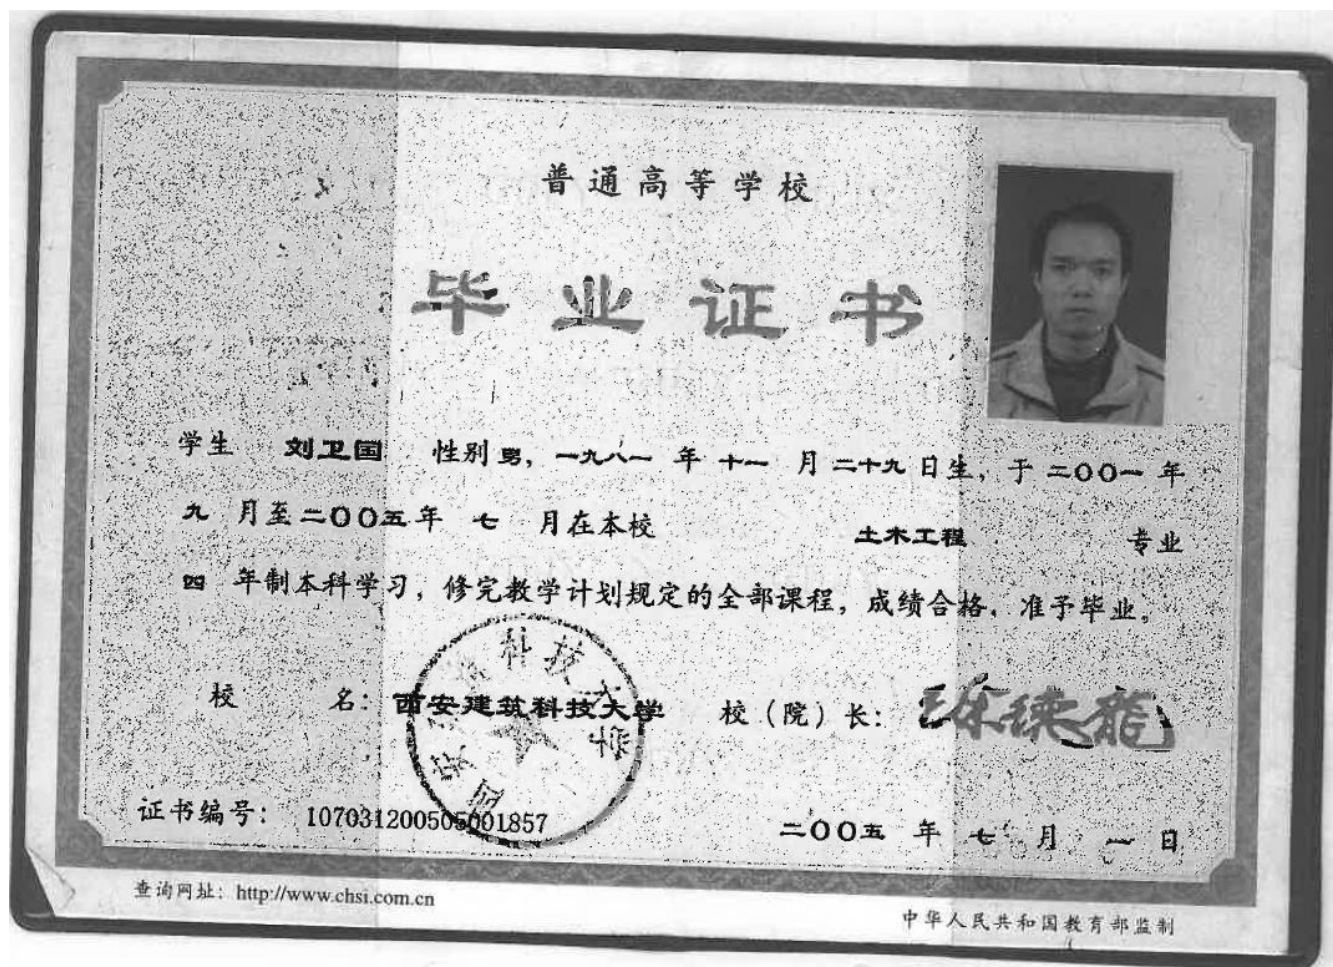 普通高等学校
毕业证书
学生 刘卫国 性别 男，一九八一 年 十一 月 二十九 日生，于 二〇〇一 年
九 月至 二〇〇五 年 七 月在本校 土木工程 专业
四 年制本科学习，修完教学计划规定的全部课程，成绩合格，准予毕业。
校 名：西安建筑科技大学 校（院）长：徐德龙
西安建筑科技大学
证书编号：107031200505001857
二〇〇五 年 七 月 一 日
查询网址：http://www.chsi.com.cn
中华人民共和国教育部监制